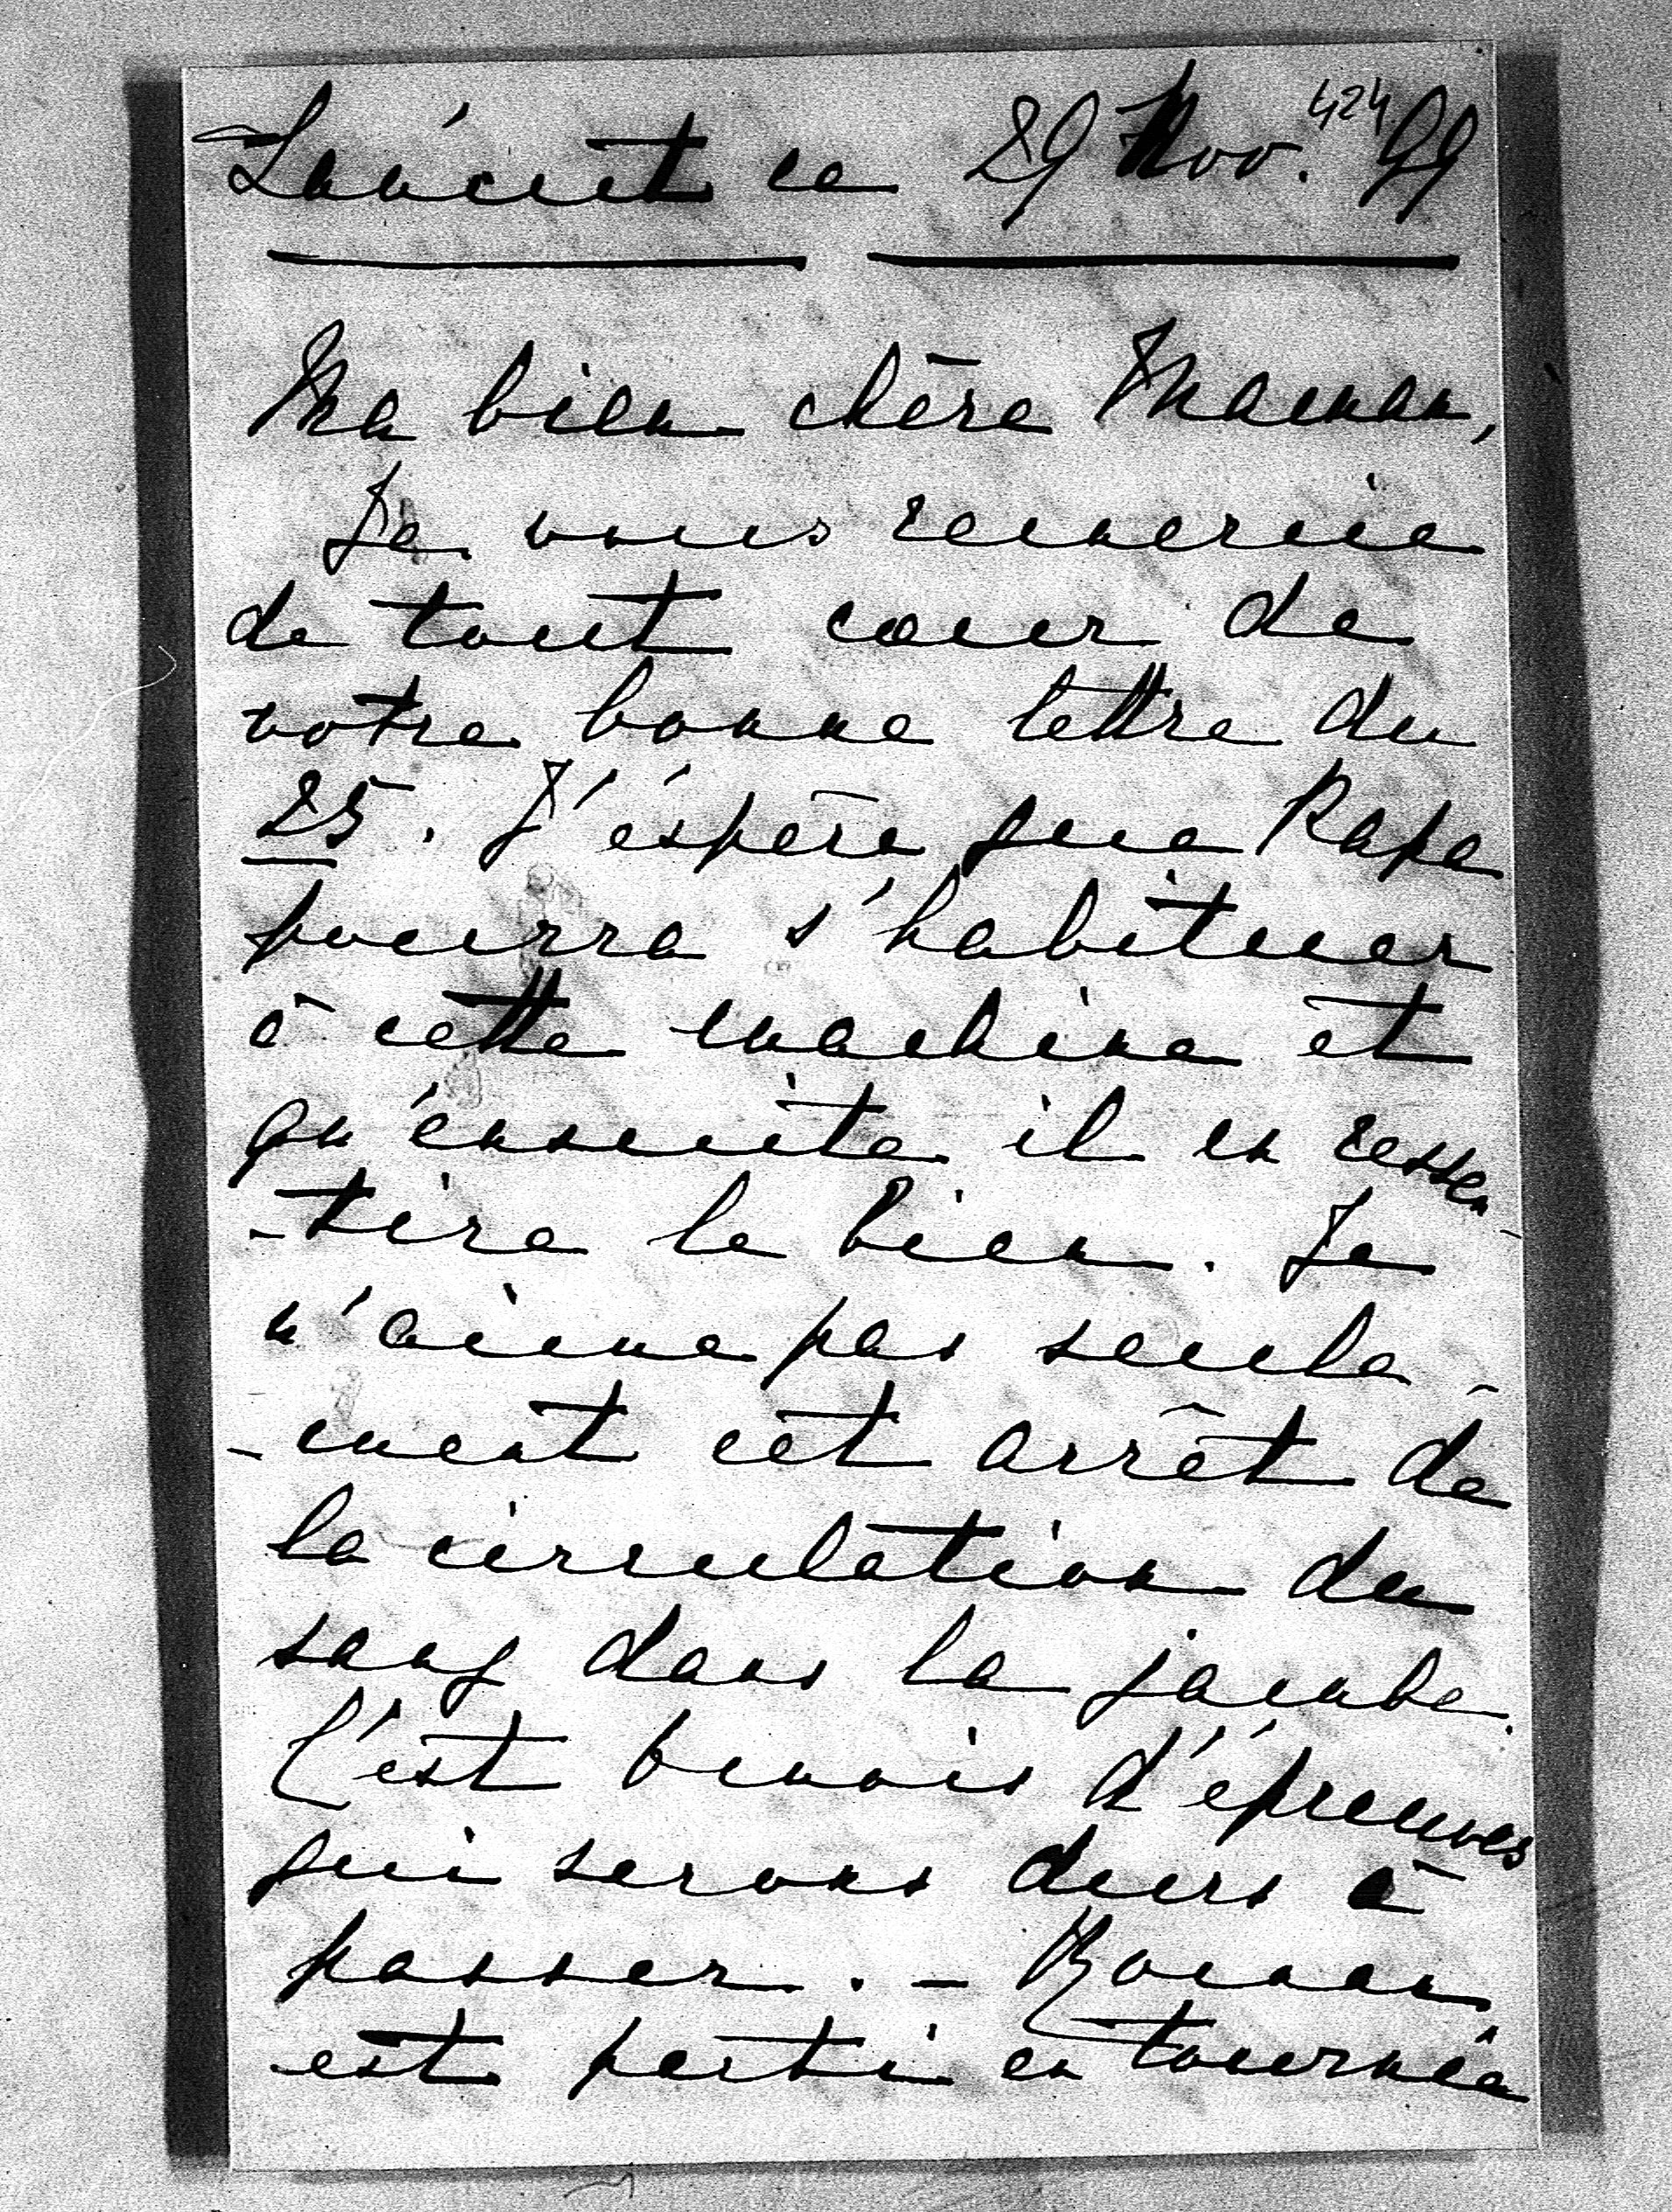 Łańcut ce 29 Nov. 99
424
Ma bien chère Maman,
Je vous remercie
de tout cœur de
votre bonne lettre du
25. J'éspère que Papa
pourra s'habituer
à cette machine et
qu'ensuite il en ressen-
-tira le bien. Je
n'aime pas seule-
-ment cet arrêt de
la circulation du
sang dans la jambe.
C'est  d'épreuves
qui serons durs à
passer. - Roman
est parti en tournée